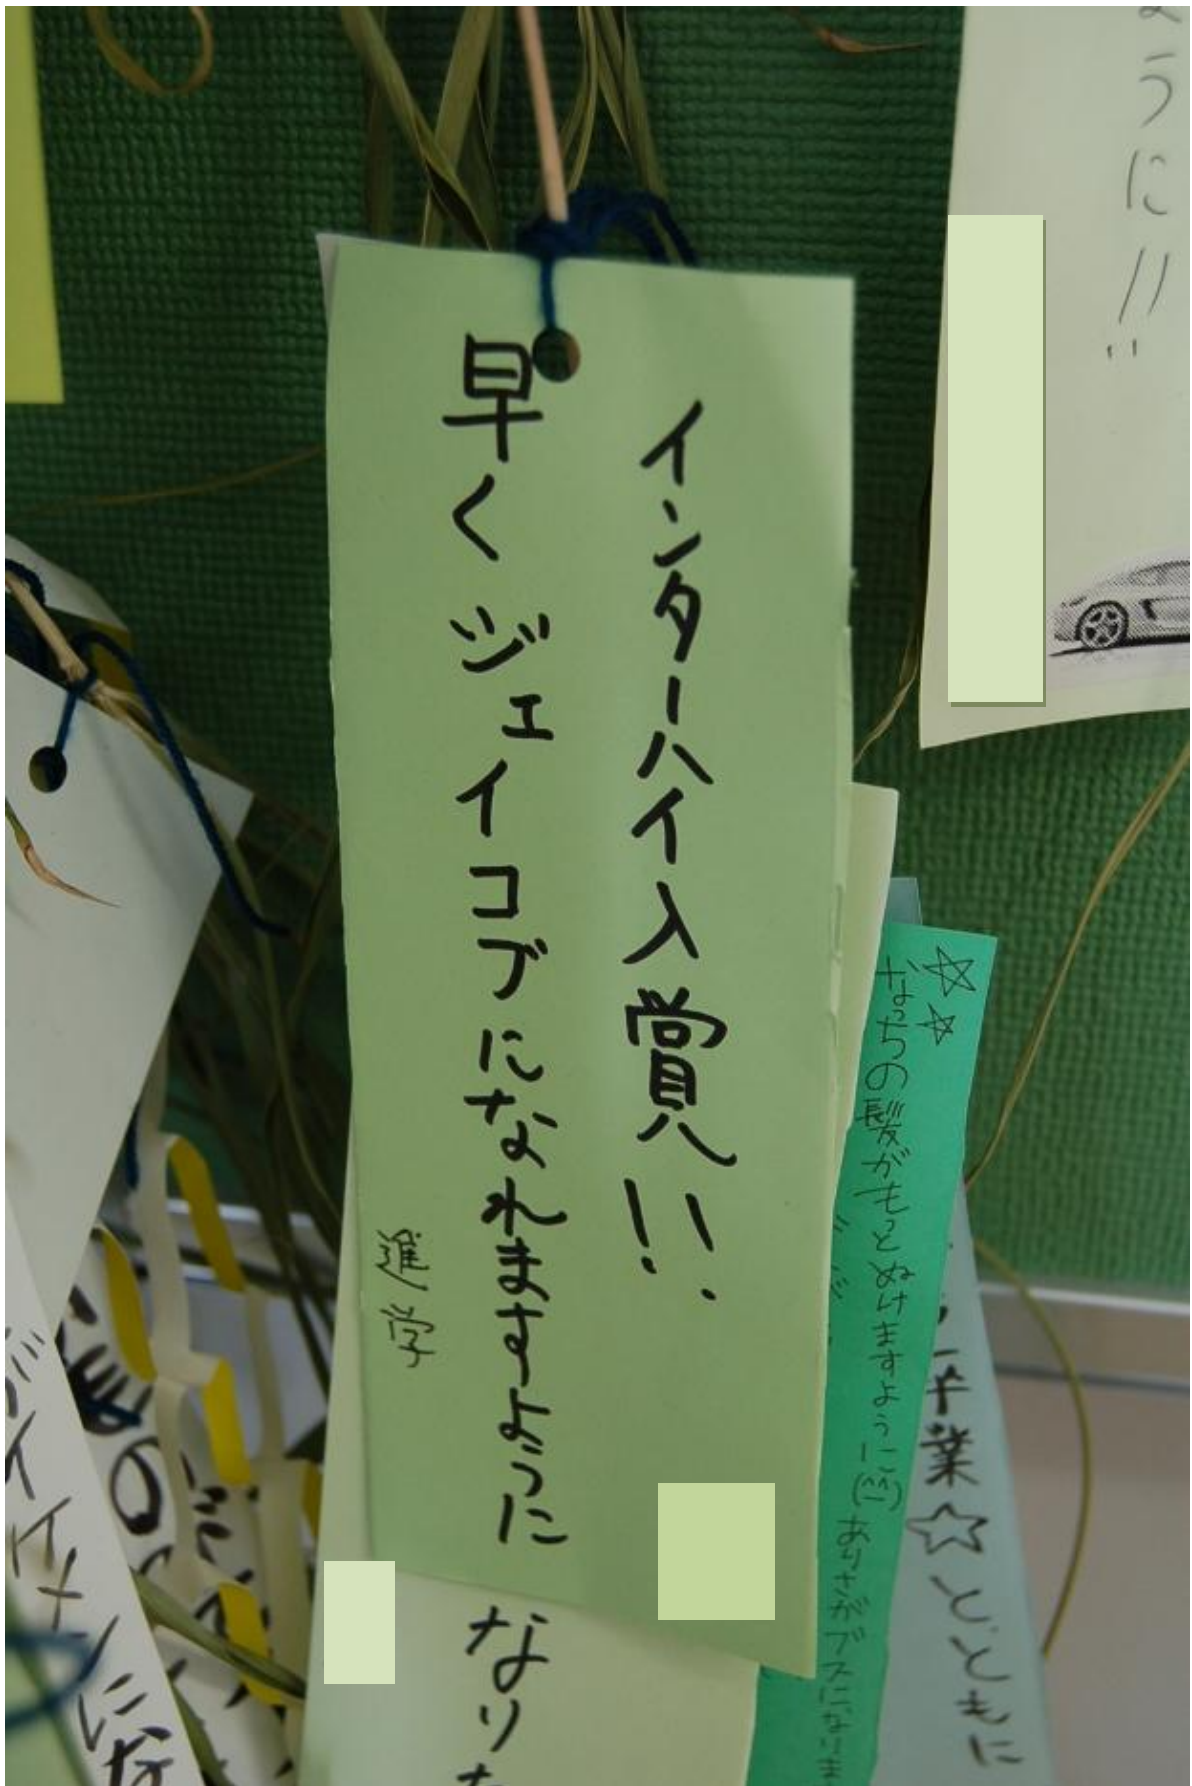 ように!!
インターハイ入賞!!
早くジェイコブになれますように
進学
なっちの髪がもっとぬけますように(^^)
ありさがブスになりま
卒業☆とともに
なりた
がイケメンにな